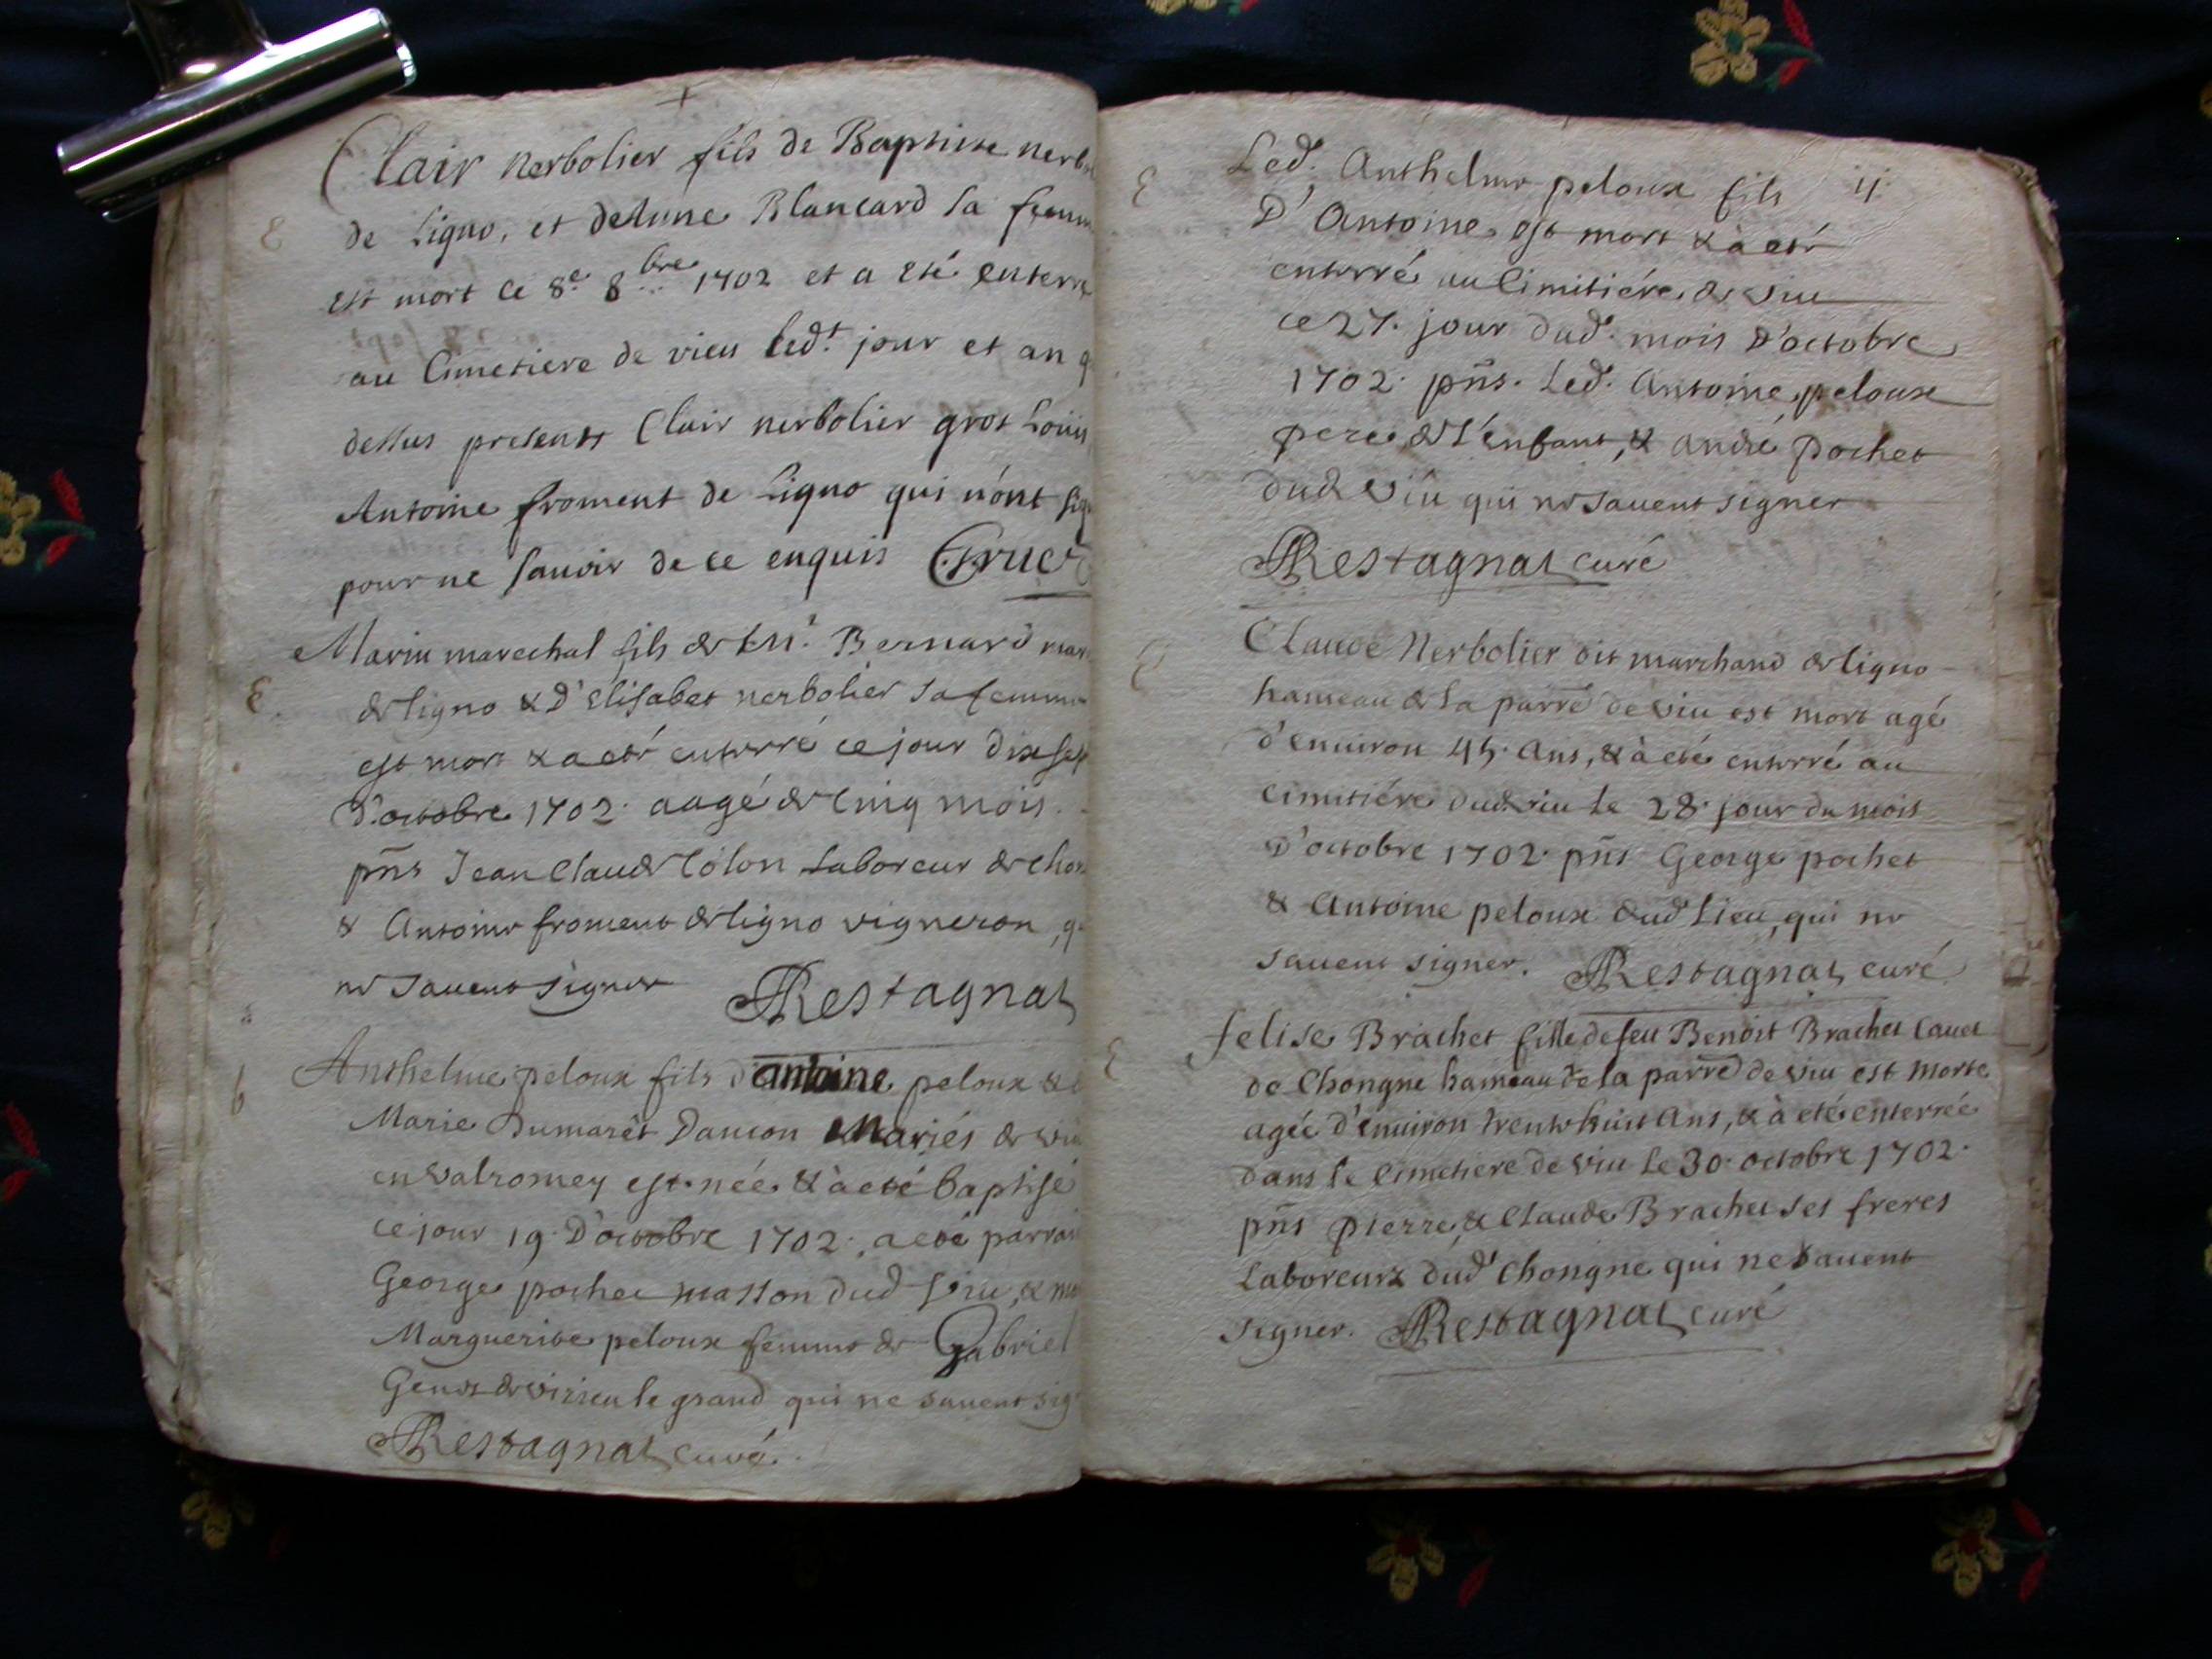 +
Clair nerbolier fils de Baptiste nerbo
E de Ligno, et de Blancard sa femm
est mort ce 8e 8bre 1702 et a été enterré
au Cimetiere de vieu led.t jour et an q
dessus presents Clair nerbolier gros Louis
Antoine froment de Ligno qui n'ont sig
pour ne savoir de ce enquis Gruet
Marin marechal fils de Bernard mar
E de ligno & D'Elisabet nerbolier sa femme
est mort & a eté enterré ce jour dix sept
D'octobre 1702. aagé de Cinq mois.
pñs Jean Claude Colon Laboreur de Chon
& Antoine froment de ligno vigneron, q
ne savent signer Restagnat
Anthelme peloux fils d'antoine peloux &
b Marie Dumarêt Dancon Mariés de viu
en Valromey est née & à eté baptisé
ce jour 19. D'octobre 1702. a eté parrain
George pochet masson dud lieu, & ma
Marguerite peloux femme de Gabriel
de virieu le grand qui ne savent sig
Restagnat curé.
Led. Anthelme peloux fils 11.
E D'Antoine est mort & à eté
enterré au Cimitiére de viu
ce 27. jour dud. mois d'octobre
1702. pñs. Led. Antoine peloux
pere de l'enfant, & andré pochet
dud viu qui ne savent signer
Restagnat curé
Claude Nerbolier dit marchand de ligno
E hameau de la parre de viu est mort agé
d'enuiron 45. ans, & à eté enterré au
cimitiére dud viu le 28. jour du mois
D'octobre 1702. pñs George pochet
& Antoine peloux dud Lieu, qui ne
savent signer. Restagnat curé
felise Brachet fille de feu Benoit Brachet Cauet
E de Chongne hameau de la parre de viu est morte
agée d'enuiron trente huit Ans, & à eté enterrée
dans le Cimetiere de viu le 30. octobre 1702.
pñs pierre & Claude Brachet ses freres
Laboreurs dud Chongne qui ne savent
signer. Restagnat curé